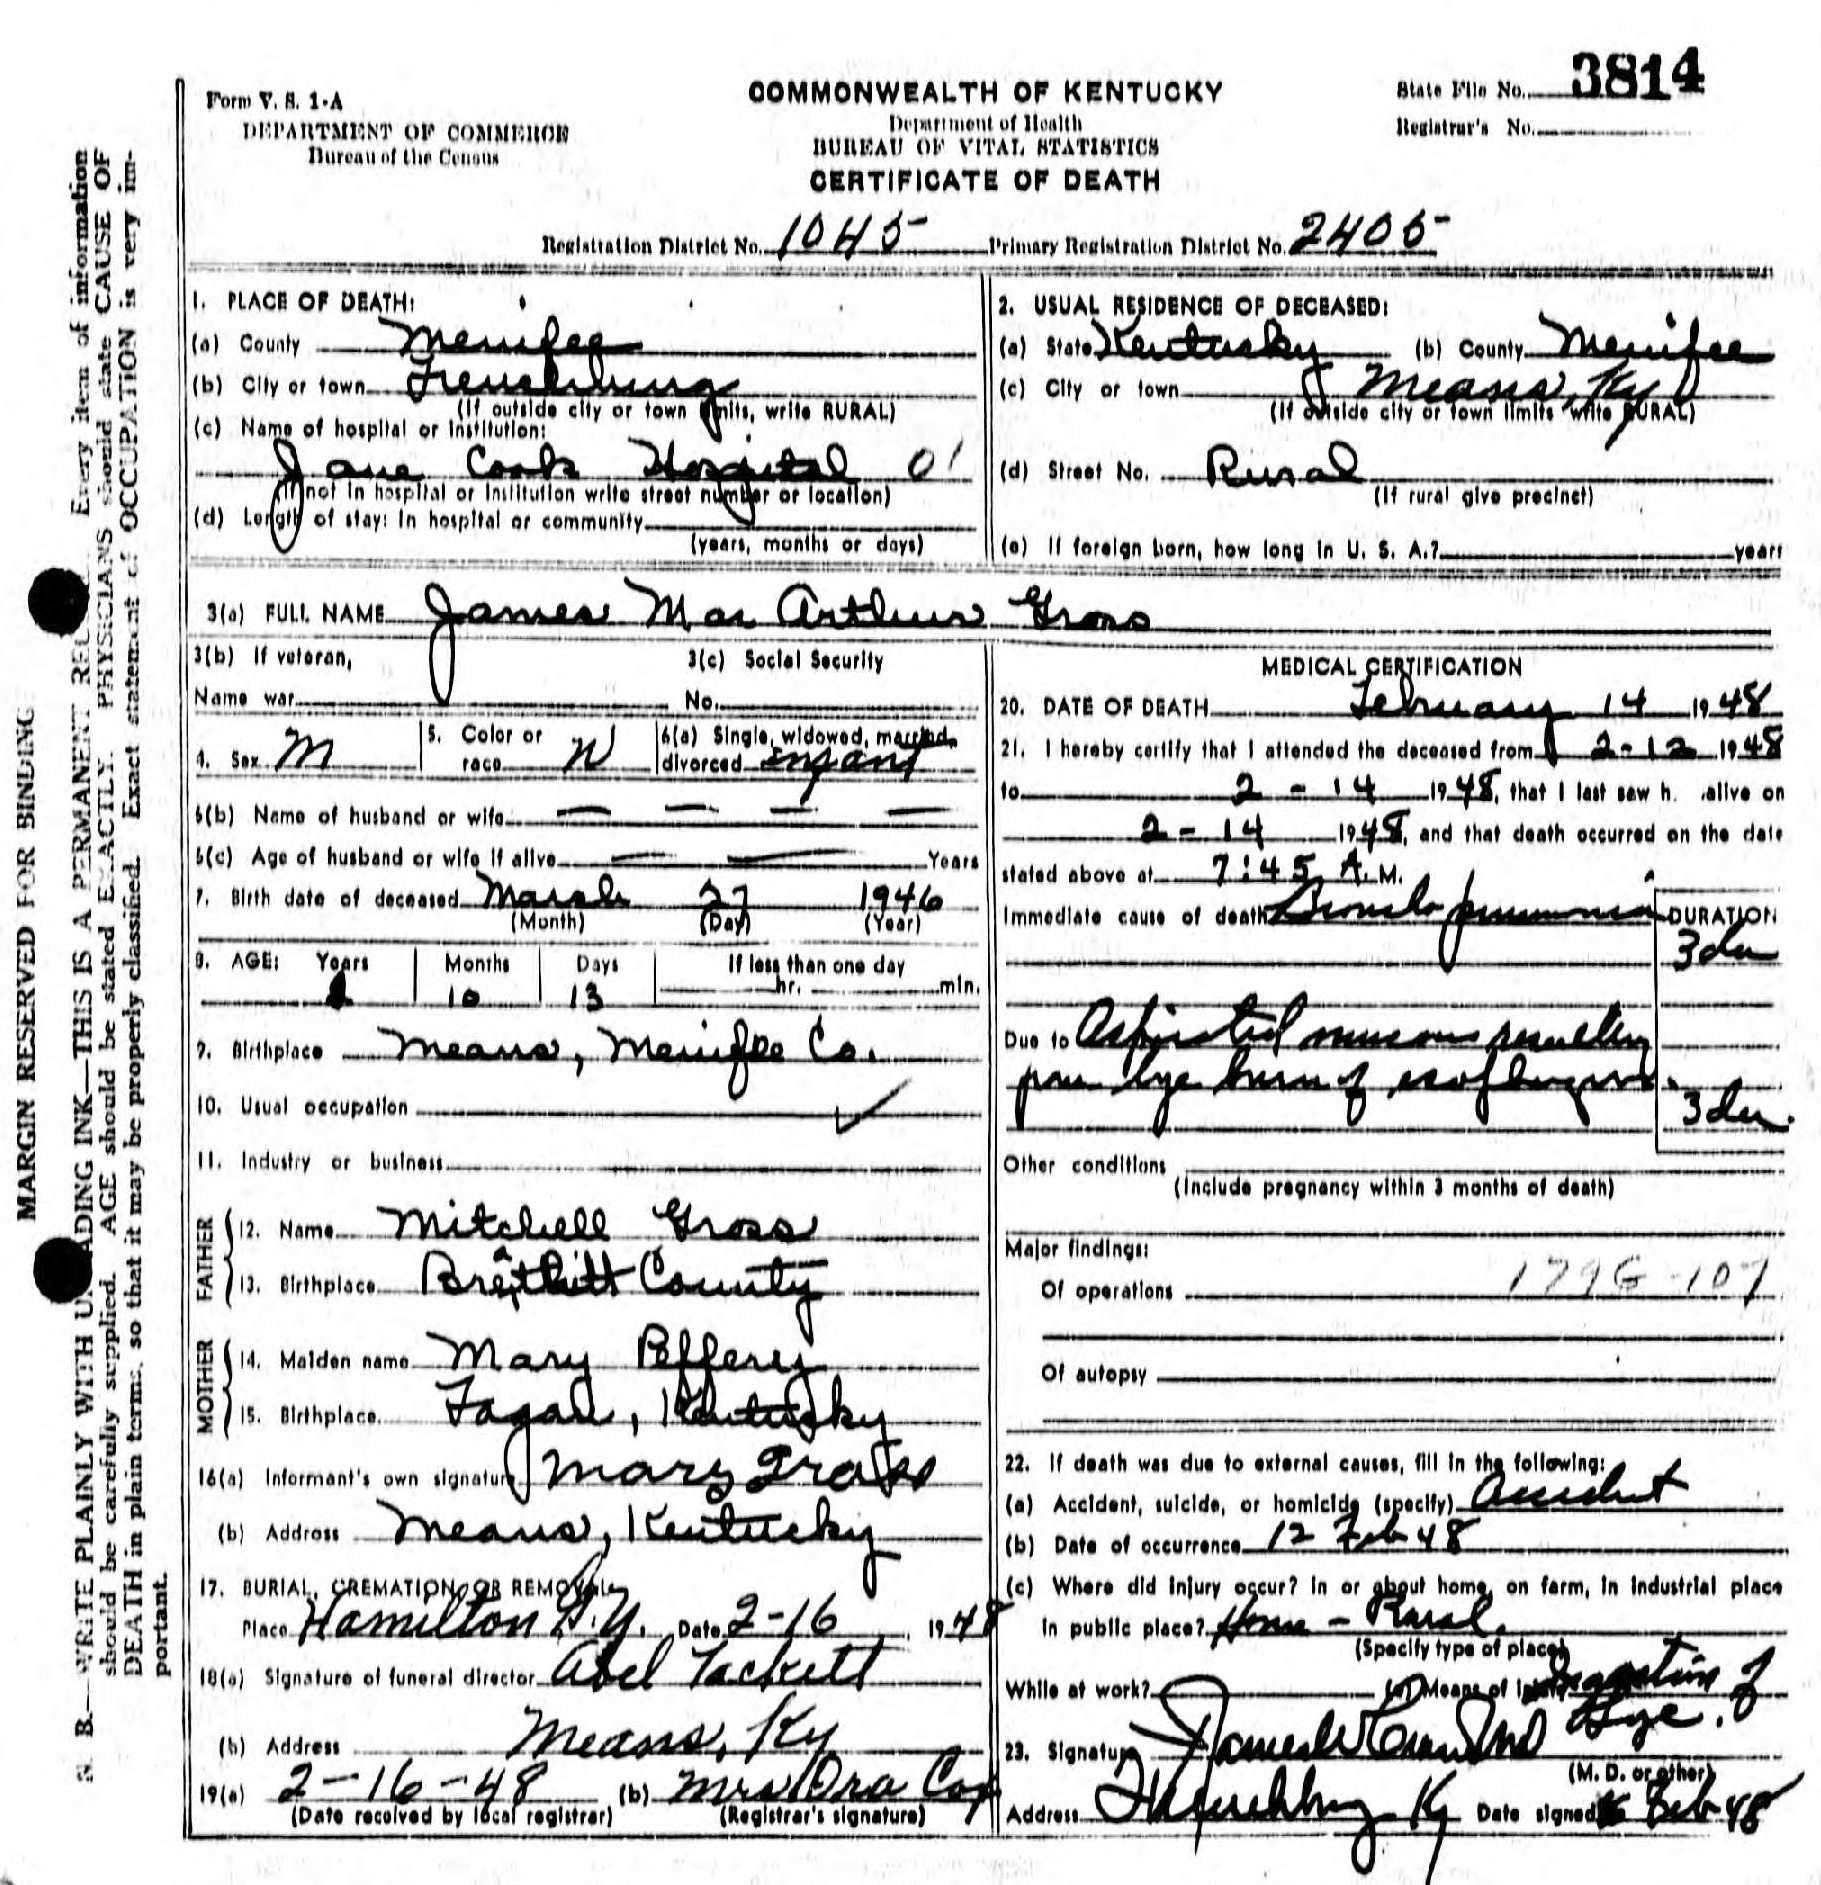 Form V. S. 1-A
DEPARTMENT OF COMMERCE
Bureau of the Census
COMMONWEALTH OF KENTUCKY
Department of Health
BUREAU OF VITAL STATISTICS
CERTIFICATE OF DEATH
State File No. 3814
Registrar's No.
Registration District No. 1045 Primary Registration District No. 2405
MARGIN RESERVED FOR BINDING
N. B.—WRITE PLAINLY WITH UNFADING INK—THIS IS A PERMANENT RECORD. Every item of information
should be carefully supplied. AGE should be stated EXACTLY. PHYSICIANS should state CAUSE OF
DEATH in plain terms, so that it may be properly classified. Exact statement of OCCUPATION is very im-
portant.
1. PLACE OF DEATH:
(a) County Menifee
(b) City or town Frenchburg
(If outside city or town limits, write RURAL)
(c) Name of hospital or institution:
Jane Cook Hospital 01
(If not in hospital or institution write street number or location)
(d) Length of stay: In hospital or community
(years, months or days)
2. USUAL RESIDENCE OF DECEASED:
(a) State Kentucky (b) County Menifee
(c) City or town Means, Ky
(If outside city or town limits write RURAL)
(d) Street No. Rural
(If rural give precinct)
(e) If foreign born, how long in U. S. A.? years
3(a) FULL NAME James Mac Arthur Gross
3(b) If veteran,
Name war
3(c) Social Security
No.
4. Sex M
5. Color or
race W
6(a) Single, widowed, married,
divorced infant
6(b) Name of husband or wife — — — —
6(c) Age of husband or wife if alive — — Years
7. Birth date of deceased March 27 1946
(Month) (Day) (Year)
8. AGE: Years Months Days If less than one day
1 10 13 hr. min.
9. Birthplace Means, Menifee Co.
10. Usual occupation ✓
11. Industry or business
FATHER
12. Name Mitchell Gross
13. Birthplace Breathitt County
MOTHER
14. Maiden name Mary Peffery
15. Birthplace Fagan, Kentucky
16(a) Informant's own signature Mary Gross
(b) Address Means, Kentucky
17. BURIAL, CREMATION, OR REMOVAL
Place Hamilton G.Y. Date 2-16 1948
18(a) Signature of funeral director Abel Tackett
(b) Address Means, Ky
19(a) 2-16-48 (b) Mrs Ora Cox
(Date received by local registrar) (Registrar's signature)
MEDICAL CERTIFICATION
20. DATE OF DEATH February 14 1948
21. I hereby certify that I attended the deceased from 2-12 1948
to 2-14 1948, that I last saw h. alive on
2-14 1948, and that death occurred on the date
stated above at 7:45 A.M.
Immediate cause of death Broncho pneumonia
DURATION
3 da
Due to Aspirated mucous resulting
from lye burn of esophagus.
3 da.
Other conditions
(Include pregnancy within 3 months of death)
Major findings:
Of operations 179G-107
Of autopsy
22. If death was due to external causes, fill in the following:
(a) Accident, suicide, or homicide (specify) Accident
(b) Date of occurrence 12 Feb 48
(c) Where did injury occur? In or about home, on farm, in industrial place
In public place? Home - Rural.
(Specify type of place)
While at work? Means of injury Ingestion of
Lye.
23. Signature
(M. D. or other)
Address Frenchburg Ky Date signed Feb 48